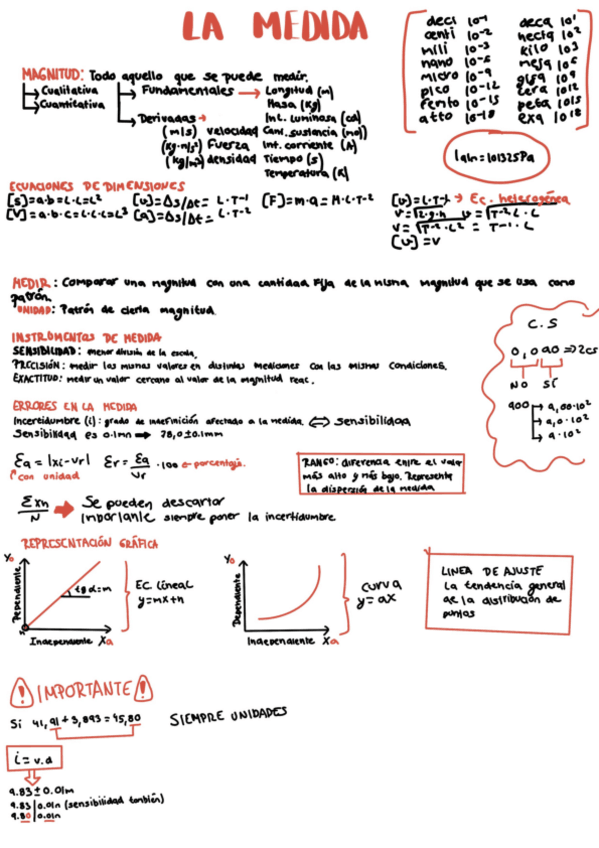 LA MEDIDA
deci 10-1 deca 10¹
centi 10-2 hecta 10²
mili 10-3 kilo 10³
nano 10-6 mega 10⁶
micro 10-9 giga 10⁹
pico 10-12 tera 10¹²
femto 10-15 peta 10¹⁵
atto 10-18 exa 10¹⁸
1atm=101325Pa
MAGNITUD: Todo aquello que se puede medir.
Cualitativa
Cuantitativa
Fundamentales → Longitud (m)
Masa (Kg)
Int. luminosa (cd)
Cant. sustancia (mol)
Int. corriente (A)
Tiempo (s)
Temperatura (K)
Derivadas →
(m/s) velocidad
(kg·m/s²) Fuerza
(kg/m³) densidad
ECUACIONES DE DIMENSIONES
[S]=a·b=L·L=L² [v]=Δs/Δt= L·T-1 [F]=m·a=M·L·T-2
[V]=a·b·c=L·L·L=L³ [a]=Δs/Δt= L·T-2
[v]=L·T-1 → Ec. heterogénea
v=√2·g·h v=√T-2L·L
v=√T-2·L² = T-1·L
[v]=v
MEDIR: Comparar una magnitud con una cantidad fija de la misma magnitud que se usa como
patrón.
UNIDAD: Patrón de cierta magnitud.
INSTRUMENTOS DE MEDIDA
SENSIBILIDAD: menor división de la escala.
PRECISIÓN: medir los mismos valores en distintas mediciones con las mismas condiciones.
EXACTITUD: medir un valor cercano al valor de la magnitud real.
C.S
0,020 => 2cs
NO SÍ
200 2,00·10²
2,0·10²
2·10²
ERRORES EN LA MEDIDA
Incertidumbre (i): grado de indefinición afectado a la medida. ⇔ sensibilidad
Sensibilidad es 0.1mm → 78,0±0.1mm
Ea = |xi-vr| Er = Ea/Vr · 100 ← porcentaje.
con unidad
RANGO: diferencia entre el valor
más alto y más bajo. Representa
la dispersión de la medida
Σxn/N → Se pueden descartar
Importante siempre poner la incertidumbre
REPRESENTACIÓN GRÁFICA
Y₀
Dependiente
tgα=m
Independiente Xa
EC. lineal
y=mx+n
Y₀
Dependiente
Independiente Xa
curva
y=ax
LINEA DE AJUSTE
La tendencia general
de la distribución de
puntos
IMPORTANTE
Si 41,91+3,893=45,80 SIEMPRE UNIDADES
i=v.a
9.83±0.01m
9.83|0.01m (sensibilidad también)
9.80|0.01m